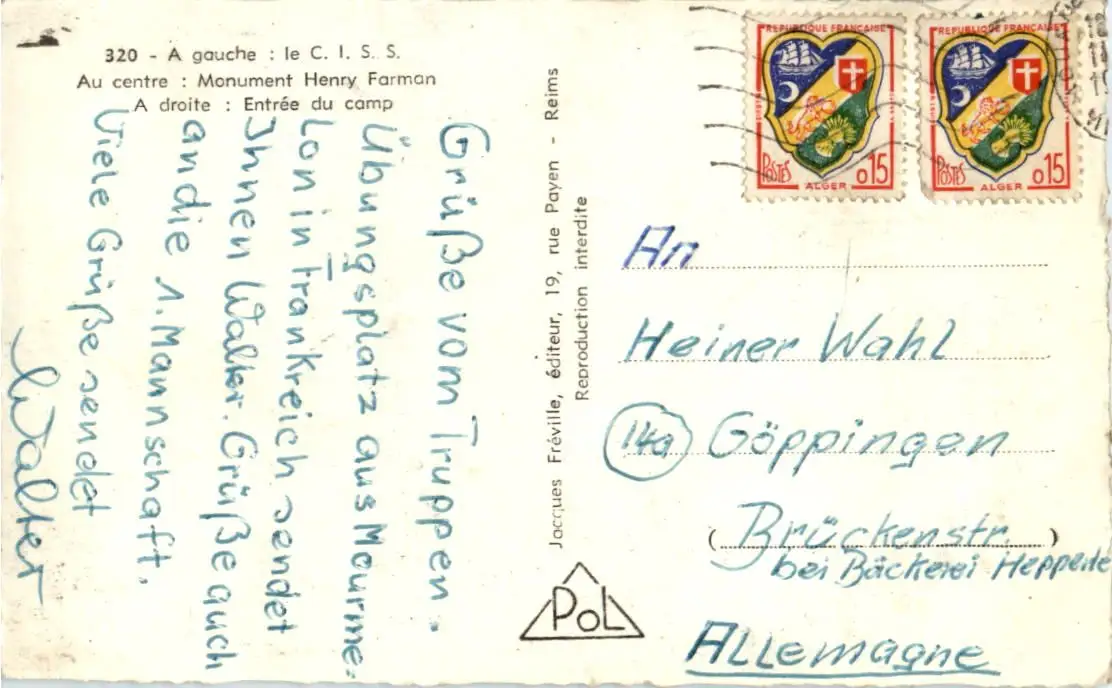 320 - A gauche : le C. I. S. S.
Au centre : Monument Henry Farman
A droite : Entrée du camp
Grüße vom Truppen-
Übungsplatz aus Mourme-
lon in Frankreich sendet
Ihnen Walter. Grüße auch
an die 1. Mannschaft.
Viele Grüße sendet
Walter
Jacques Fréville, éditeur, 19, rue Payen - Reims
Reproduction interdite
PoL
REPUBLIQUE FRANÇAISE
POSTES
0,15
ALGER
REPUBLIQUE FRANÇAISE
POSTES
0,15
ALGER
An
Heiner Wahl
14a Göppingen
( Brückenstr. )
bei Bäckerei
Allemagne